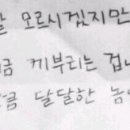 오르시겠지만
금 케부리는 겁니
금 달달한 놈